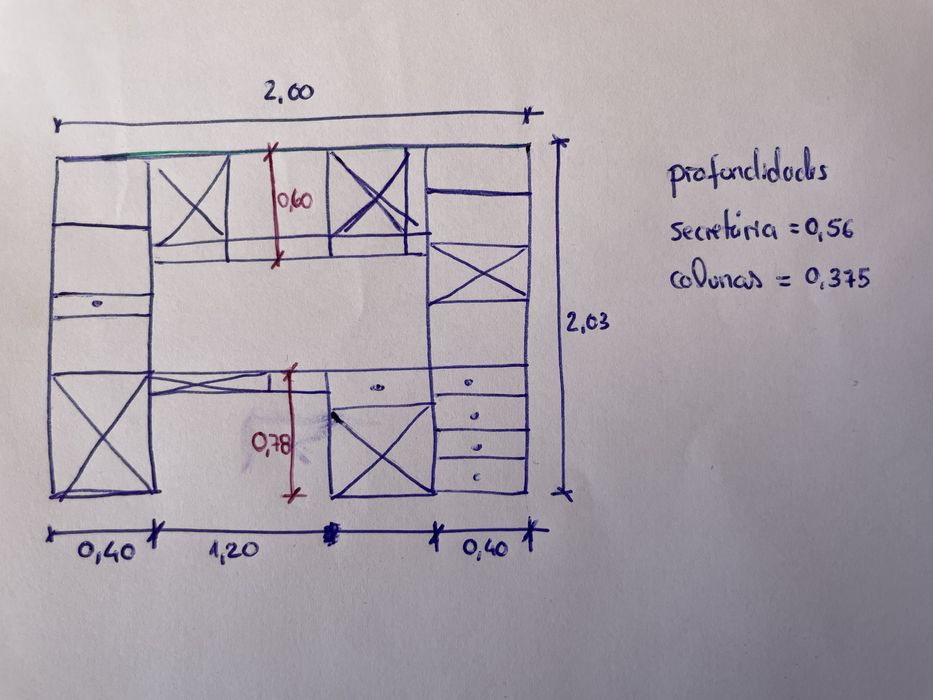 2,00
0,60
profundidades
secretária = 0,56
colunas = 0,375
2,03
0,78
0,40
1,20
0,40